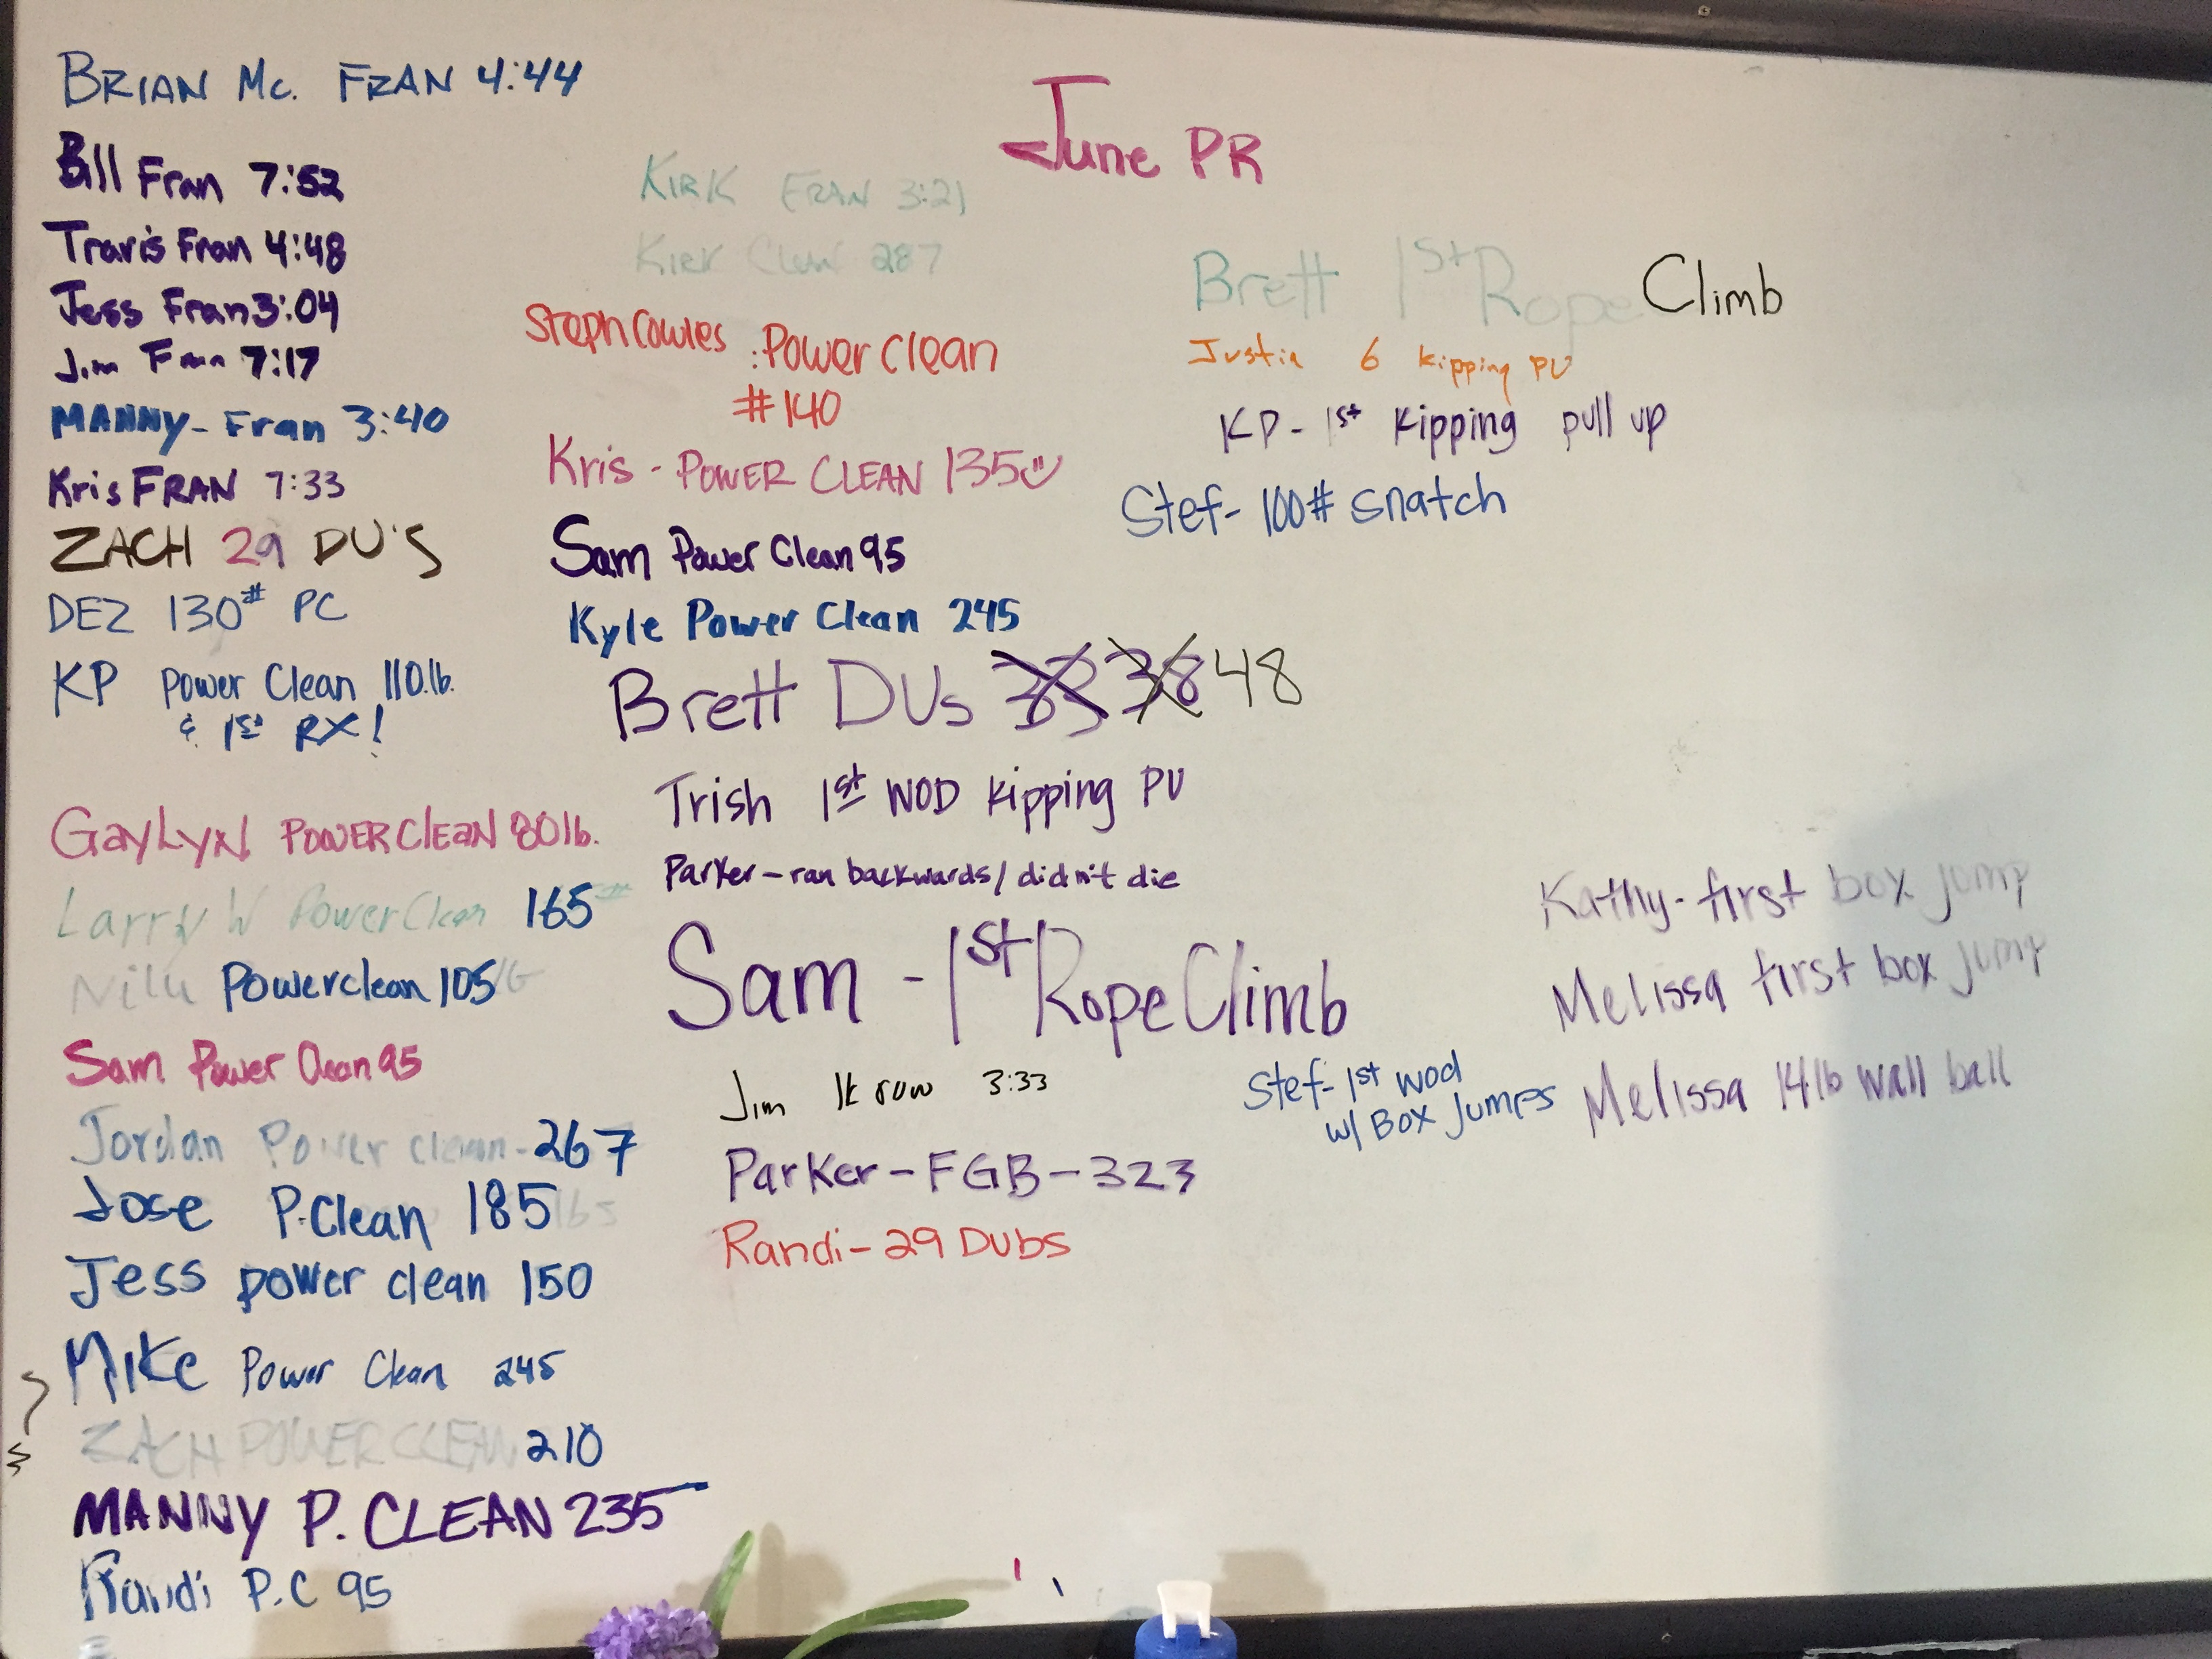 June PR
BRIAN Mc. FRAN 4:44
Bill Fran 7:52
Travis Fran 4:48
Jess Fran 3:04
Jim Fran 7:17
MANNY - Fran 3:40
Kris FRAN 7:33
ZACH 29 DU'S
DEZ 130# PC
KP Power Clean 110 lb.
& 1st RX!
GayLyN POWER CLEaN 80 lb.
Larry W Power Clean 165#
Powerclean 105
Sam Power Clean 95
Jordan Power clean - 267
Jose P.Clean 185 lbs
Jess power clean 150
MIKe Power Clean 245
ZACH POWER CLEAN 210
MANNY P. CLEAN 235
Randi P.C 95
KIRK FRAN 3:21
Kirk Clean 287
Steph Cowles : Power Clean
#140
Kris - POWER CLEAN 135
Sam Power Clean 95
Kyle Power Clean 245
Brett DUs 38 48
Trish 1st WOD Kipping PU
Parker - ran backwards / didn't die
Sam - 1st Rope Climb
Jim 1k row 3:33
Parker - FGB - 323
Randi - 29 Dubs
Brett 1st Rope Climb
Justin 6 kipping PU
KP - 1st Kipping pull up
Stef - 100# snatch
Stef - 1st wod
w/ Box Jumps
Kathy - first box jump
Melissa first box jump
Melissa 14lb wall ball